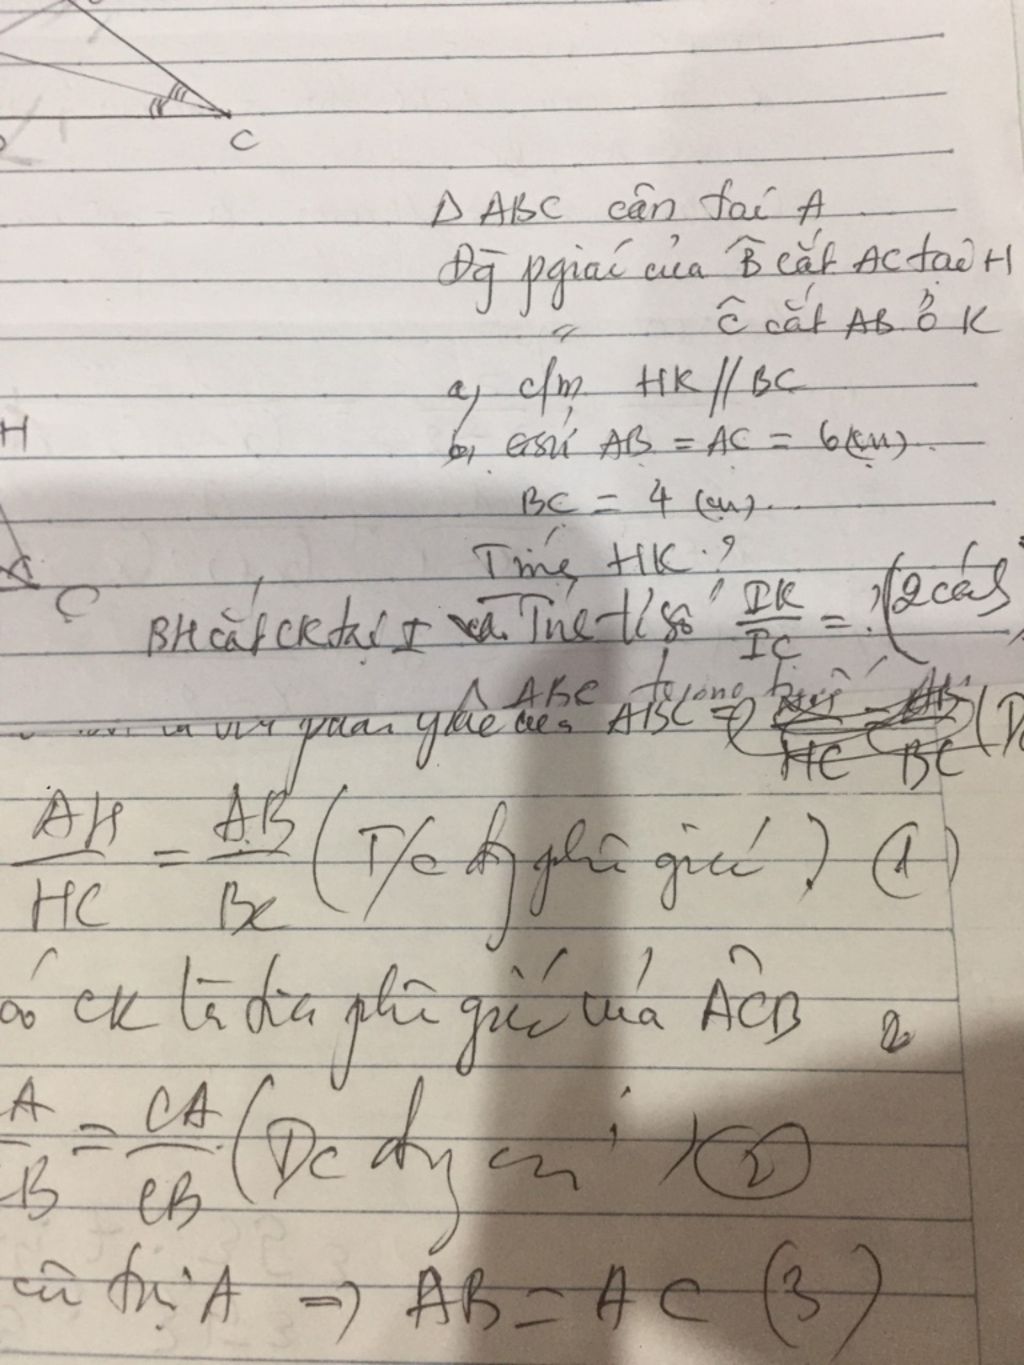 C
Δ ABC cân tại A
Đg pgiác của B̂ cắt AC tại H
" Ĉ cắt AB ở K
H
a, c/m HK // BC
b, Giả sử AB = AC = 6 (cm)
BC = 4 (cm)
Tính HK ?
C
BH cắt CK tại I Tính tỉ số IK/IC = ? (2 cách
Δ ABC trong
ABC =>
HC BC
AH/HC = AB/BC (T/c đg phân giác) (1)
có CK là tia phân giác của AĈB
A/B = CA/CB (Dc đg) (2)
cân tại A => AB = AC (3)